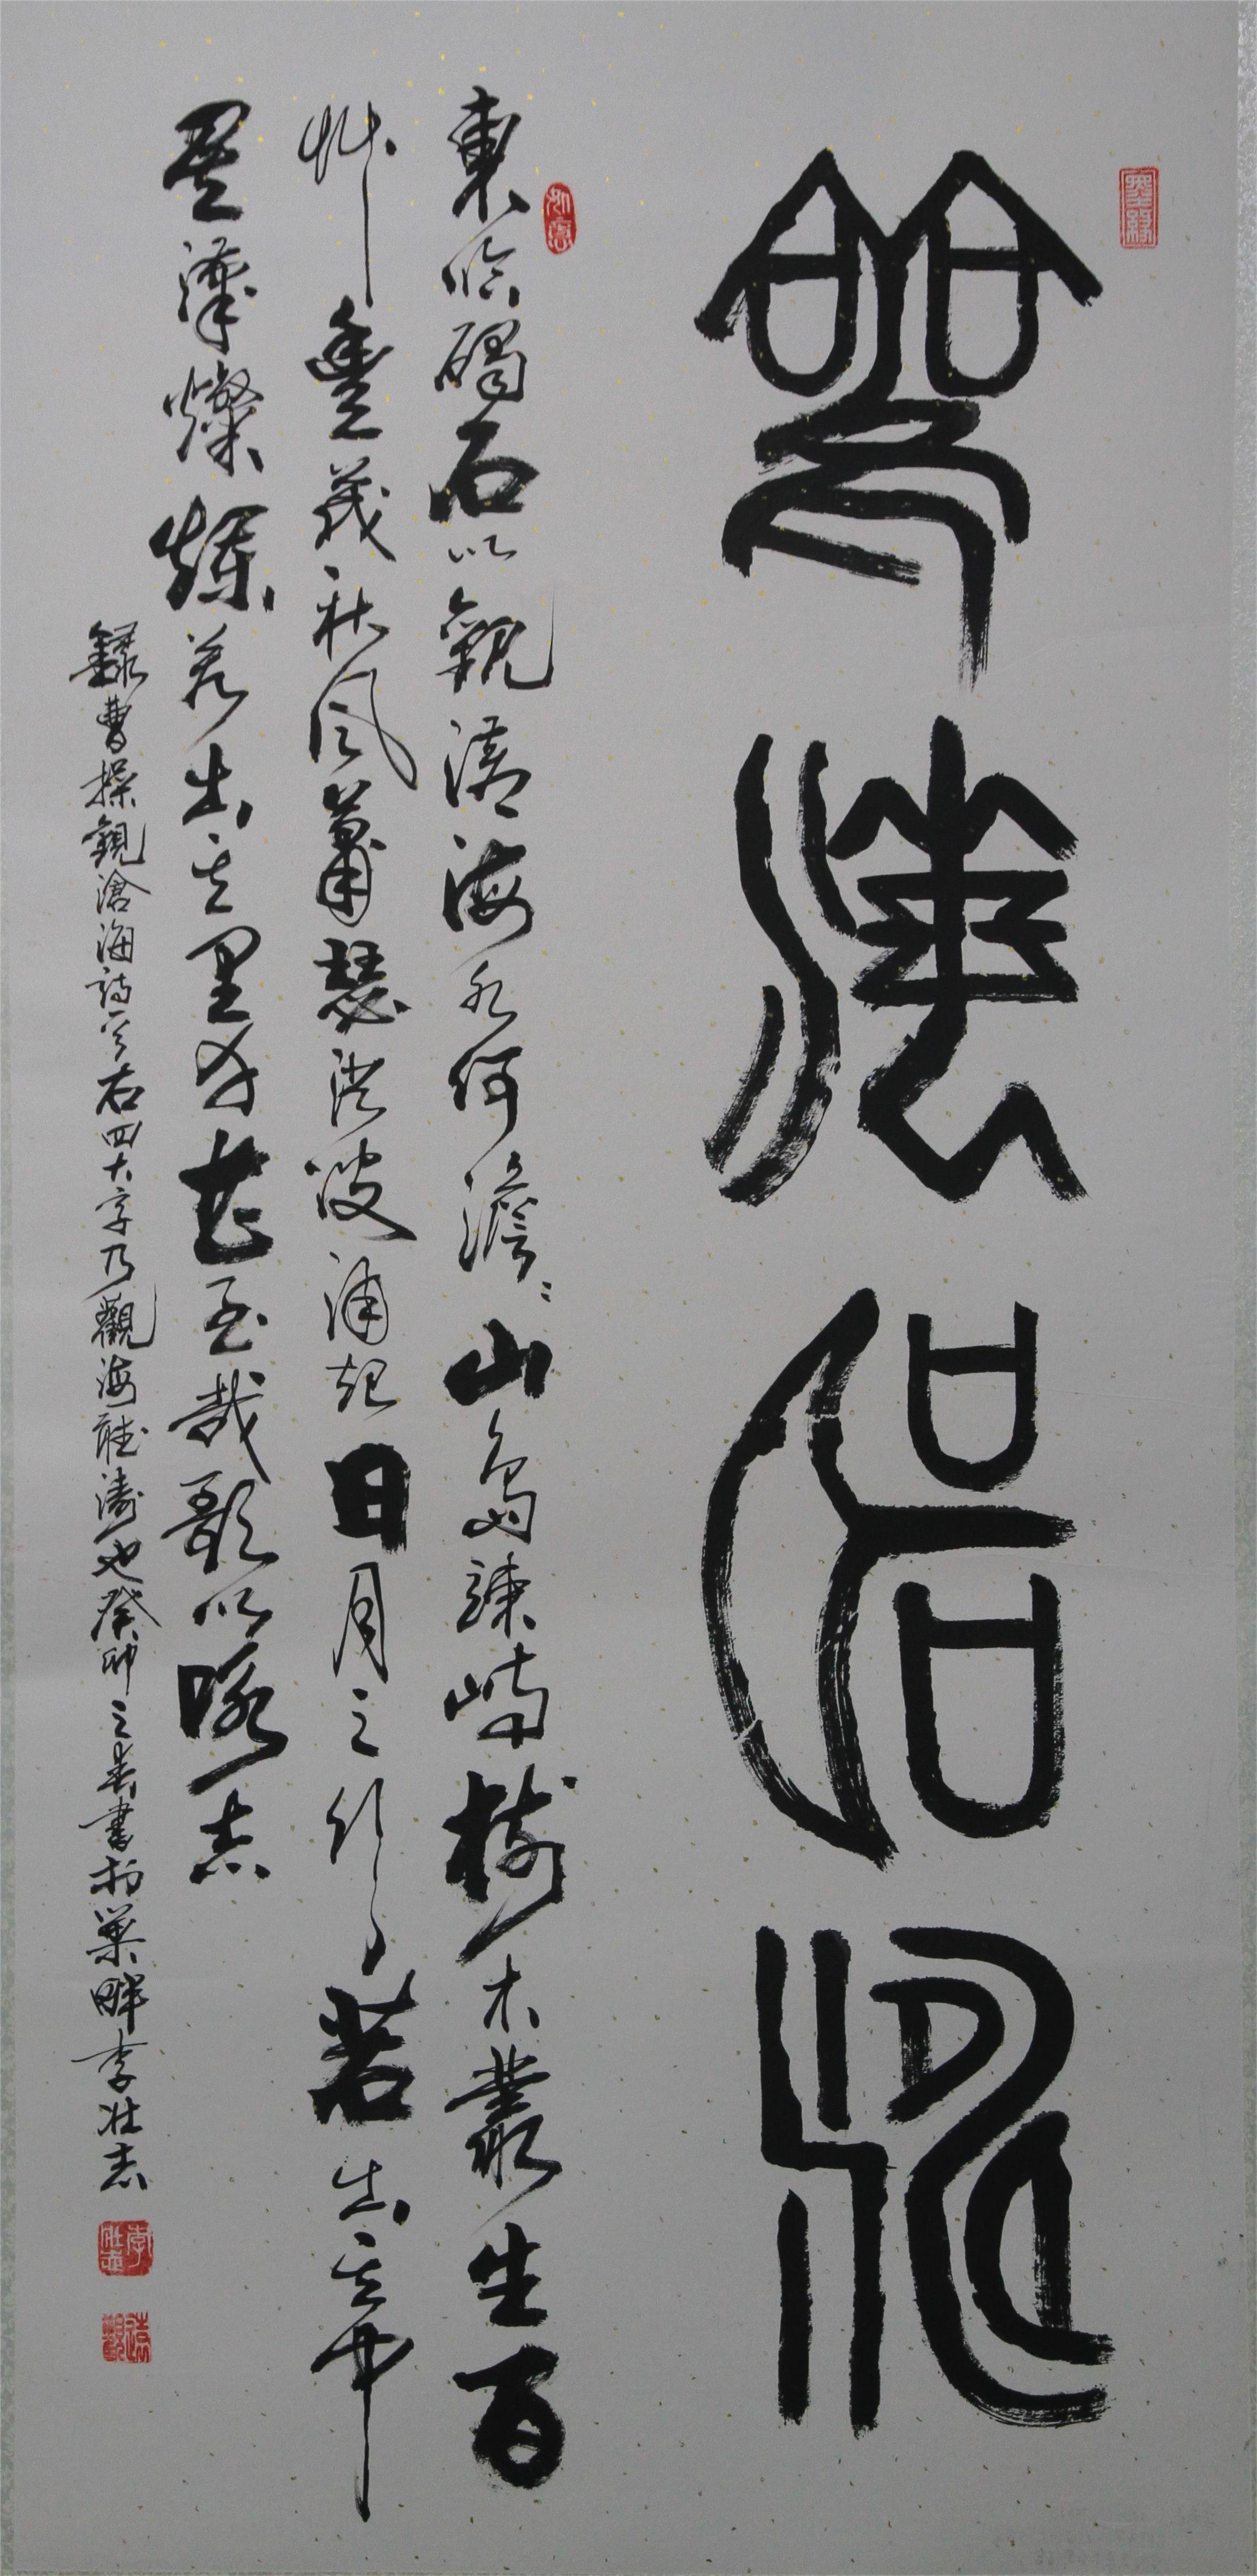 墨緣
觀海聽濤
如意
東臨碣石以觀滄海水何澹〻山島竦峙樹木叢生百
艸豐茂秋風蕭瑟洪波涌起日月之行若出其中
星漢燦爛若出其里幸甚至哉歌以詠志
錄曹操觀滄海詩一首右四大字乃觀海聽濤也癸卯之春書於巢畔李壯志
李壯志